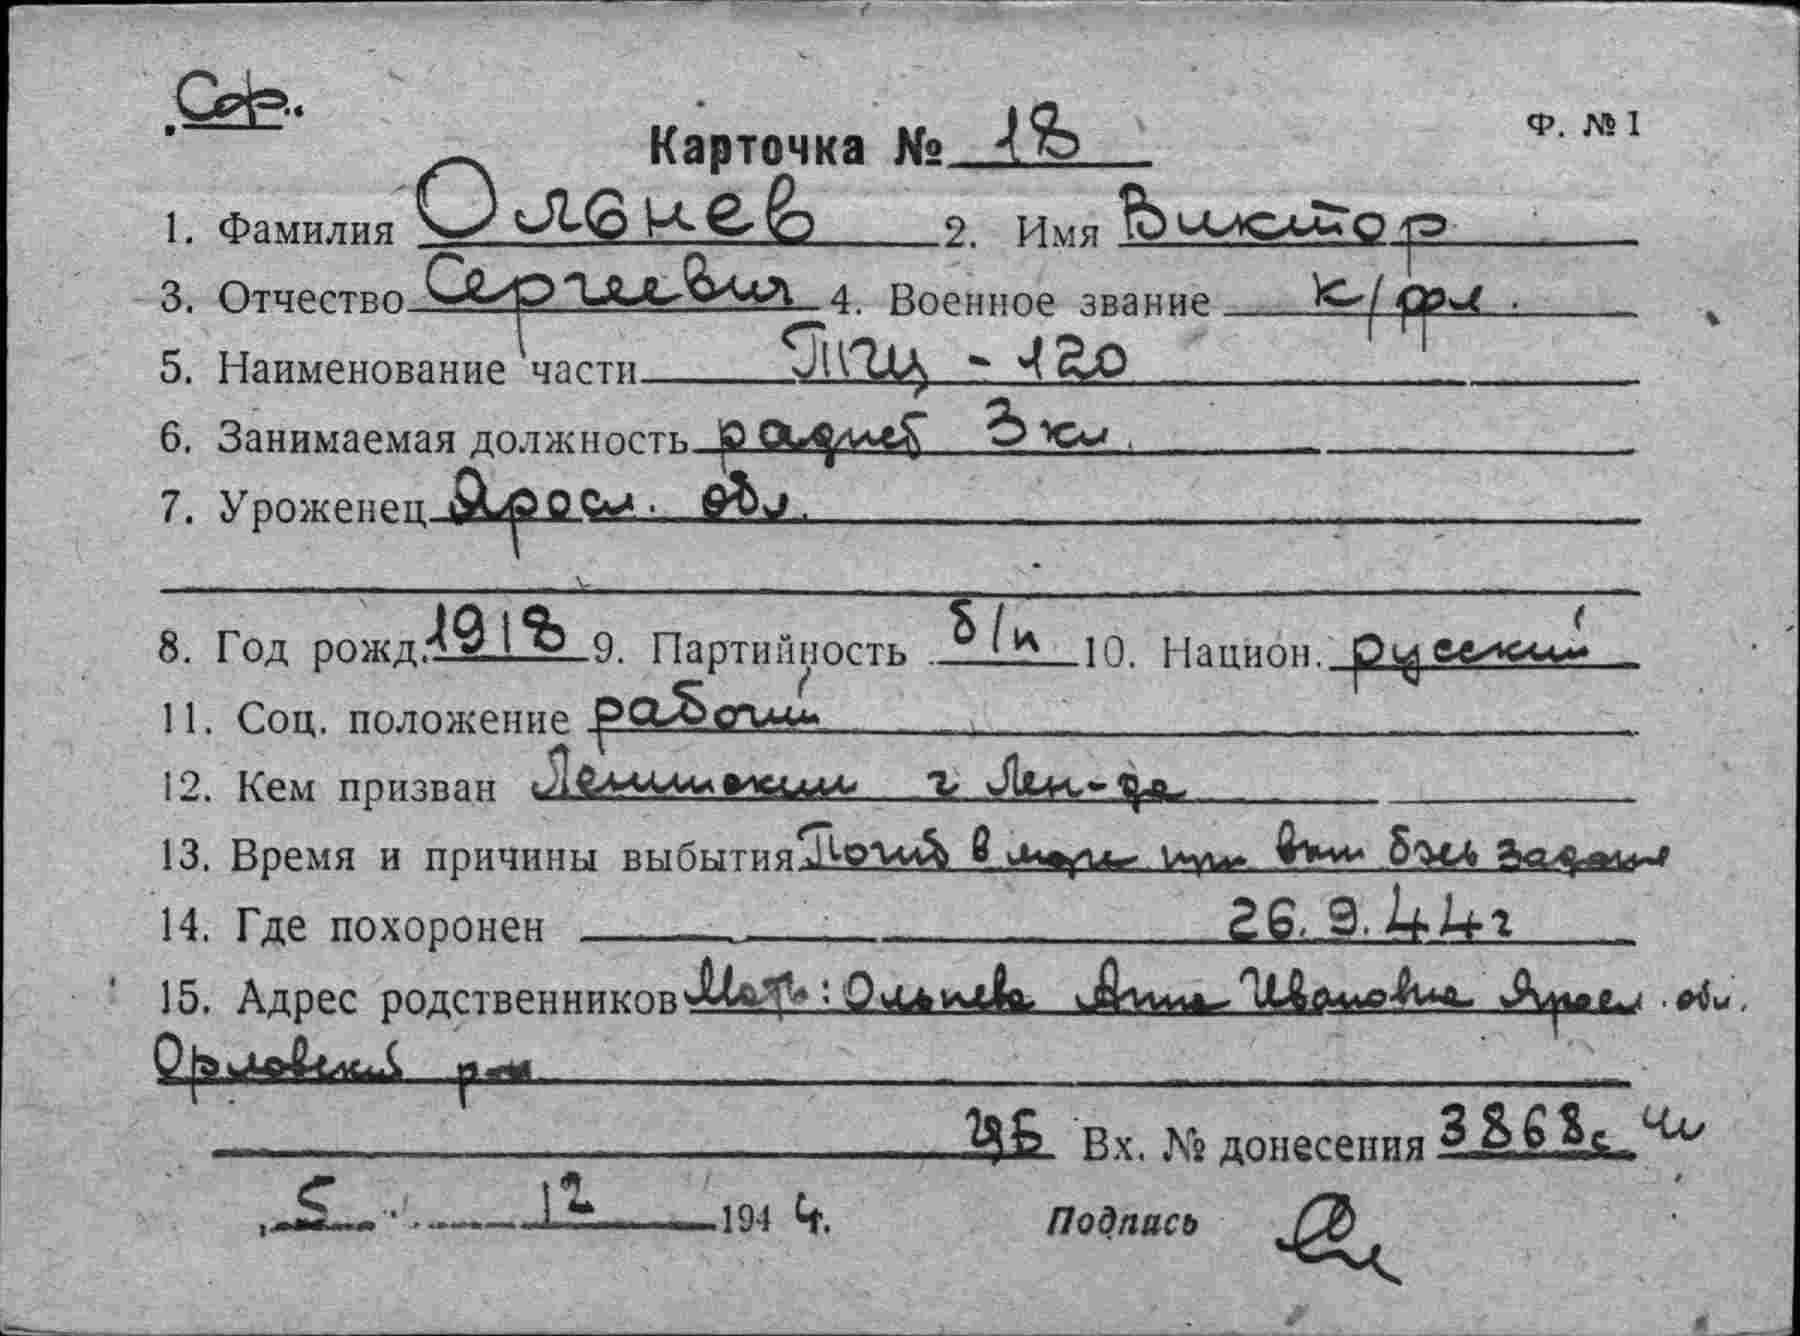 Сор..
Карточка № 18
Ф. № 1
1. Фамилия Ольнев 2. Имя Виктор
3. Отчество Сергеевич 4. Военное звание к/фл.
5. Наименование части ТЩ - 120
6. Занимаемая должность радист 3 кл.
7. Уроженец Яросл. обл.
8. Год рожд. 1918 9. Партийность б/п 10. Национ. русский
11. Соц. положение рабочий
12. Кем призван Ленинским г Лен-да
13. Время и причины выбытия Погиб в море при вып боев задания
14. Где похоронен 26.9.44г
15. Адрес родственников Мать: Ольнева Анна Ивановна Яросл. обл.
Орловский р-н
Вх. № донесения 3868с
5 12 194 4.
Подпись